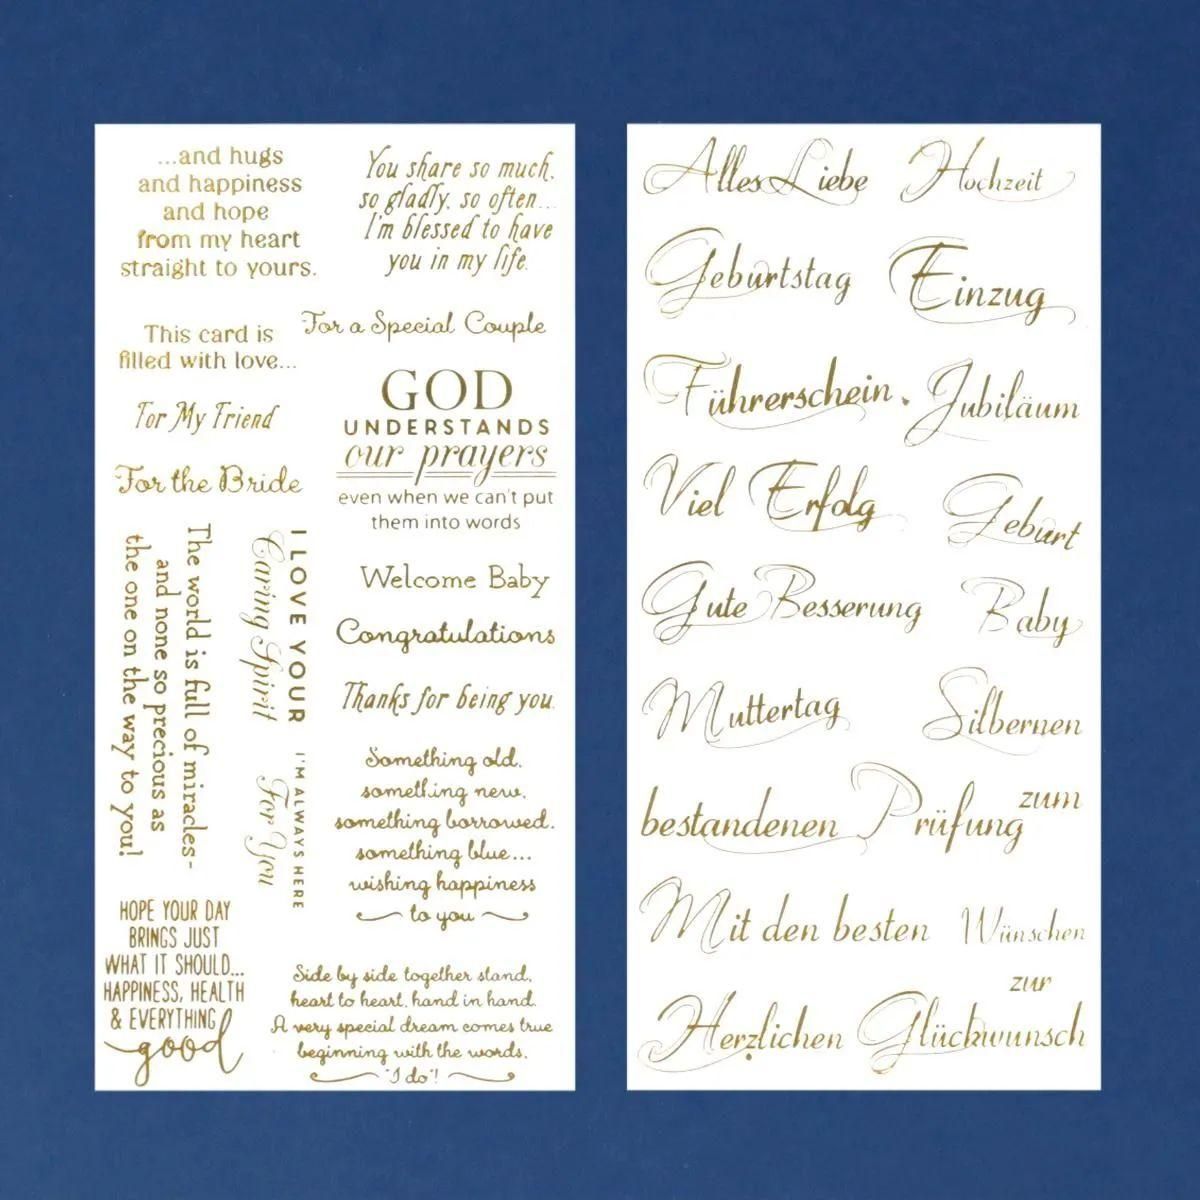 ...and hugs
and happiness
and hope
from my heart
straight to yours.
You share so much,
so gladly, so often...
I'm blessed to have
you in my life.
This card is
filled with love...
For a Special Couple
For My Friend
For the Bride
GOD
UNDERSTANDS
our prayers
even when we can't put
them into words
The world is full of miracles-
and none so precious as
the one on the way to you!
I LOVE YOUR
Caring Spirit
I'M ALWAYS HERE
For You
Welcome Baby
Congratulations
Thanks for being you.
Something old,
something new,
something borrowed,
something blue...
wishing happiness
to you
HOPE YOUR DAY
BRINGS JUST
WHAT IT SHOULD...
HAPPINESS, HEALTH
& EVERYTHING
good
Side by side together stand,
heart to heart, hand in hand.
A very special dream comes true
beginning with the words,
"I do"!
Alles Liebe
Hochzeit
Geburtstag
Einzug
Führerschein
Jubiläum
Viel Erfolg
Geburt
Gute Besserung
Baby
Muttertag
Silbernen
zum
bestandenen Prüfung
Mit den besten
Wünschen
zur
Herzlichen Glückwunsch